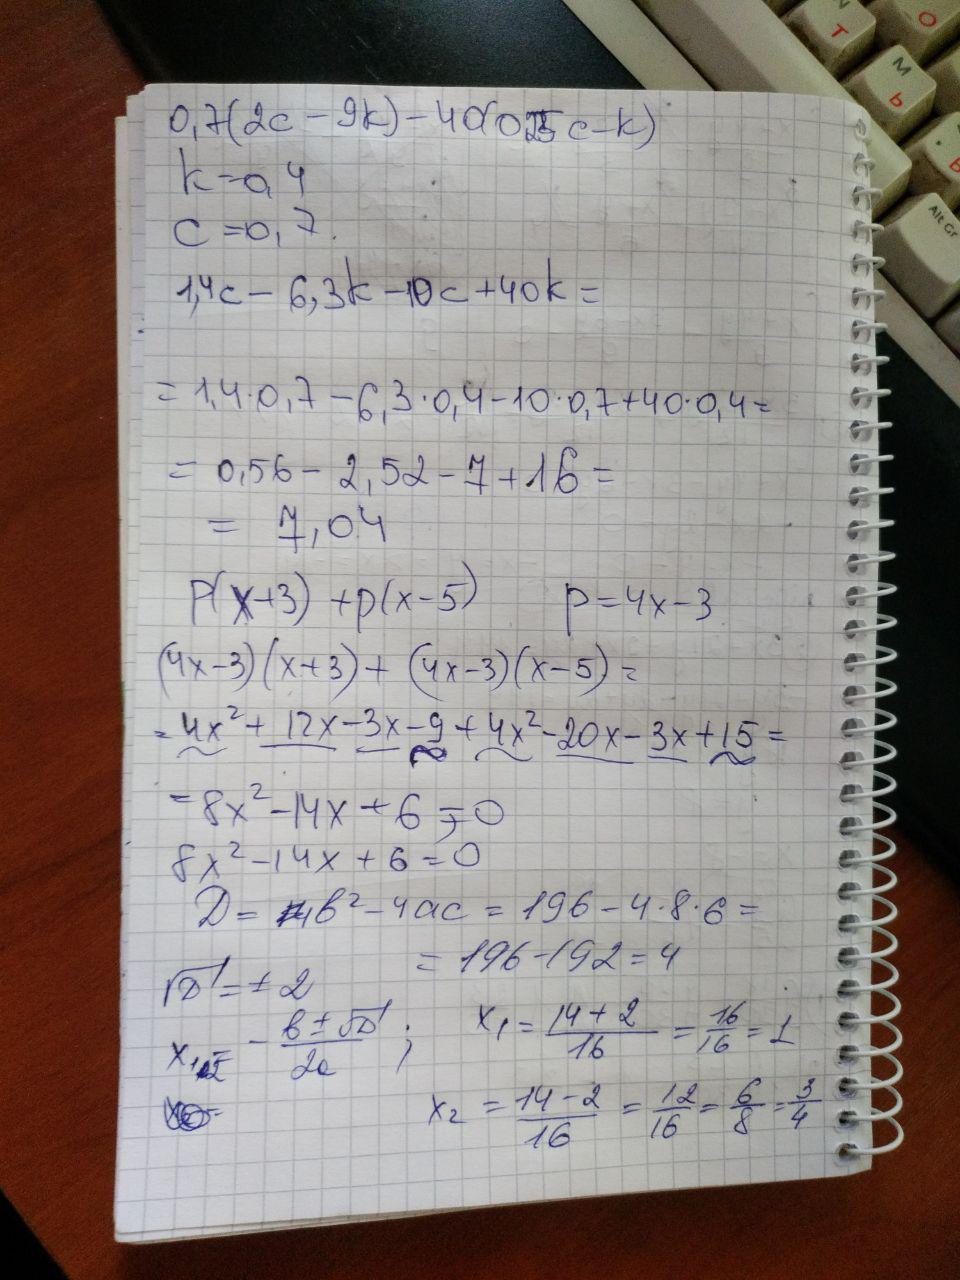 N
T
O
M
Ь
Alt Gr
0,7(2c - 9k) - 40(0,25c - k)
k = 0,4
c = 0,7.
1,4c - 6,3k - 10c + 40k =
= 1,4·0,7 - 6,3·0,4 - 10·0,7 + 40·0,4 =
= 0,56 - 2,52 - 7 + 16 =
= 7,04
p(x+3) + p(x-5) p = 4x - 3
(4x-3)(x+3) + (4x-3)(x-5) =
= 4x² + 12x - 3x - 9 + 4x² - 20x - 3x + 15 =
= 8x² - 14x + 6 = 0
8x² - 14x + 6 = 0
D = b² - 4ac = 196 - 4·8·6 =
= 196 - 192 = 4
√D = ± 2
x₁,₂ = -b ± √D / 2a ; x₁ = 14 + 2 / 16 = 16/16 = 1
x₂ = 14 - 2 / 16 = 12/16 = 6/8 = 3/4